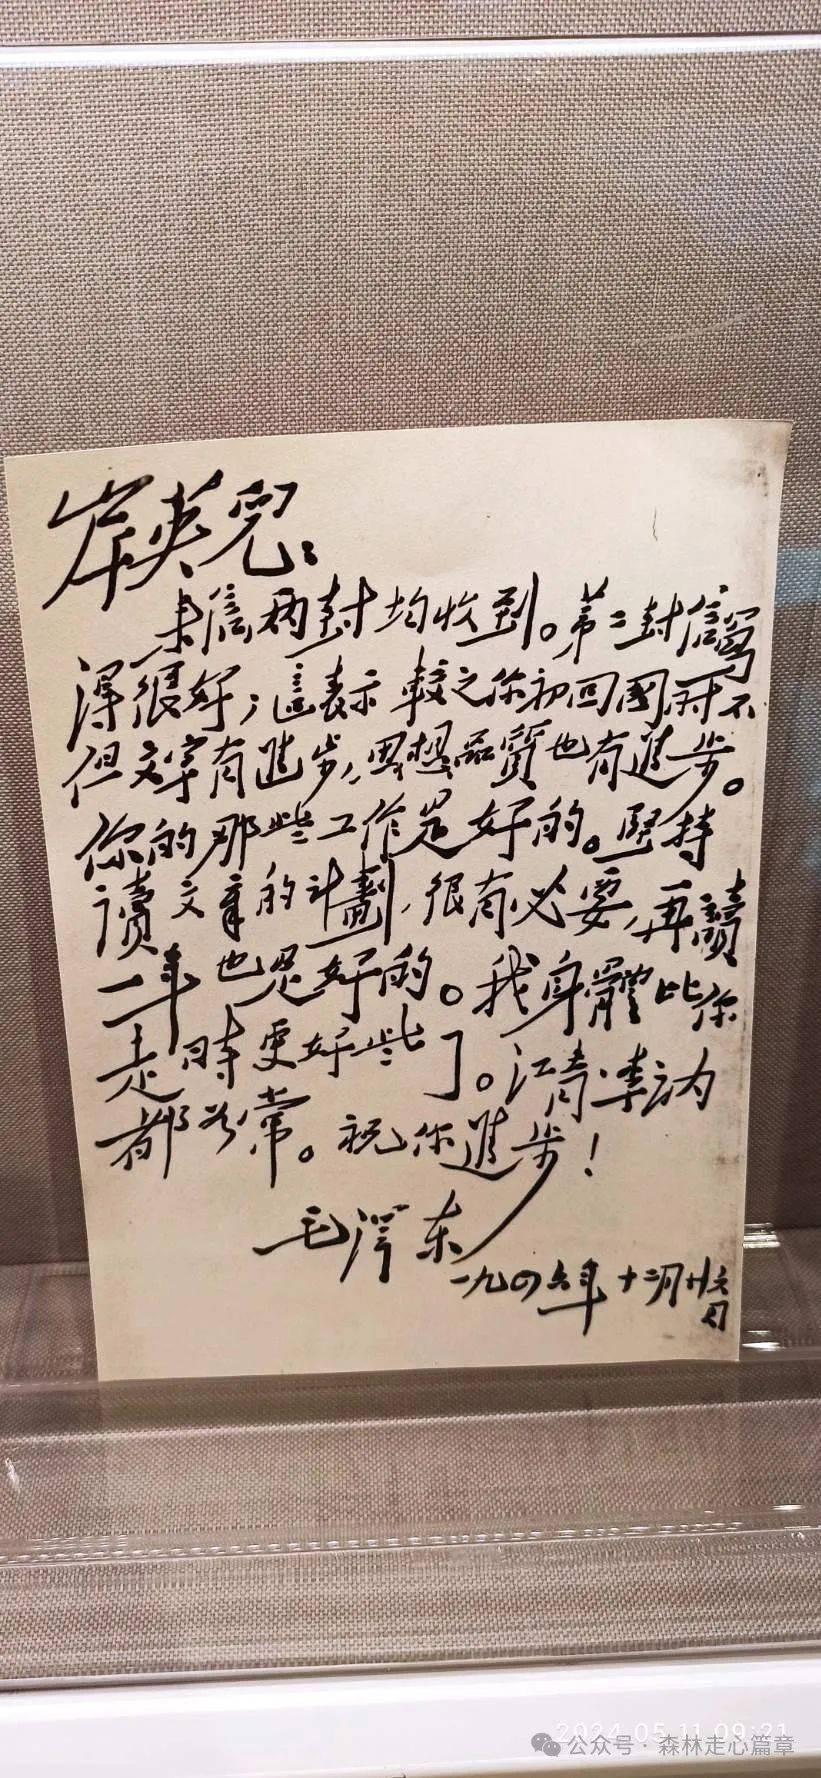 岸英兒：
来信两封均收到。第二封信写
得很好，這表示較之你初回國时不
但文字有進步，思想品質也有進步。
你的那些工作是好的。堅持
讀文章的计劃，很有必要，再讀
一年也是好的。我身體比你
走時更好些了。江青、李讷
都如常。祝你進步！
毛泽东
一九四六年十二月廿六
日
2024.05.11 09:21
公众号·森林走心篇章